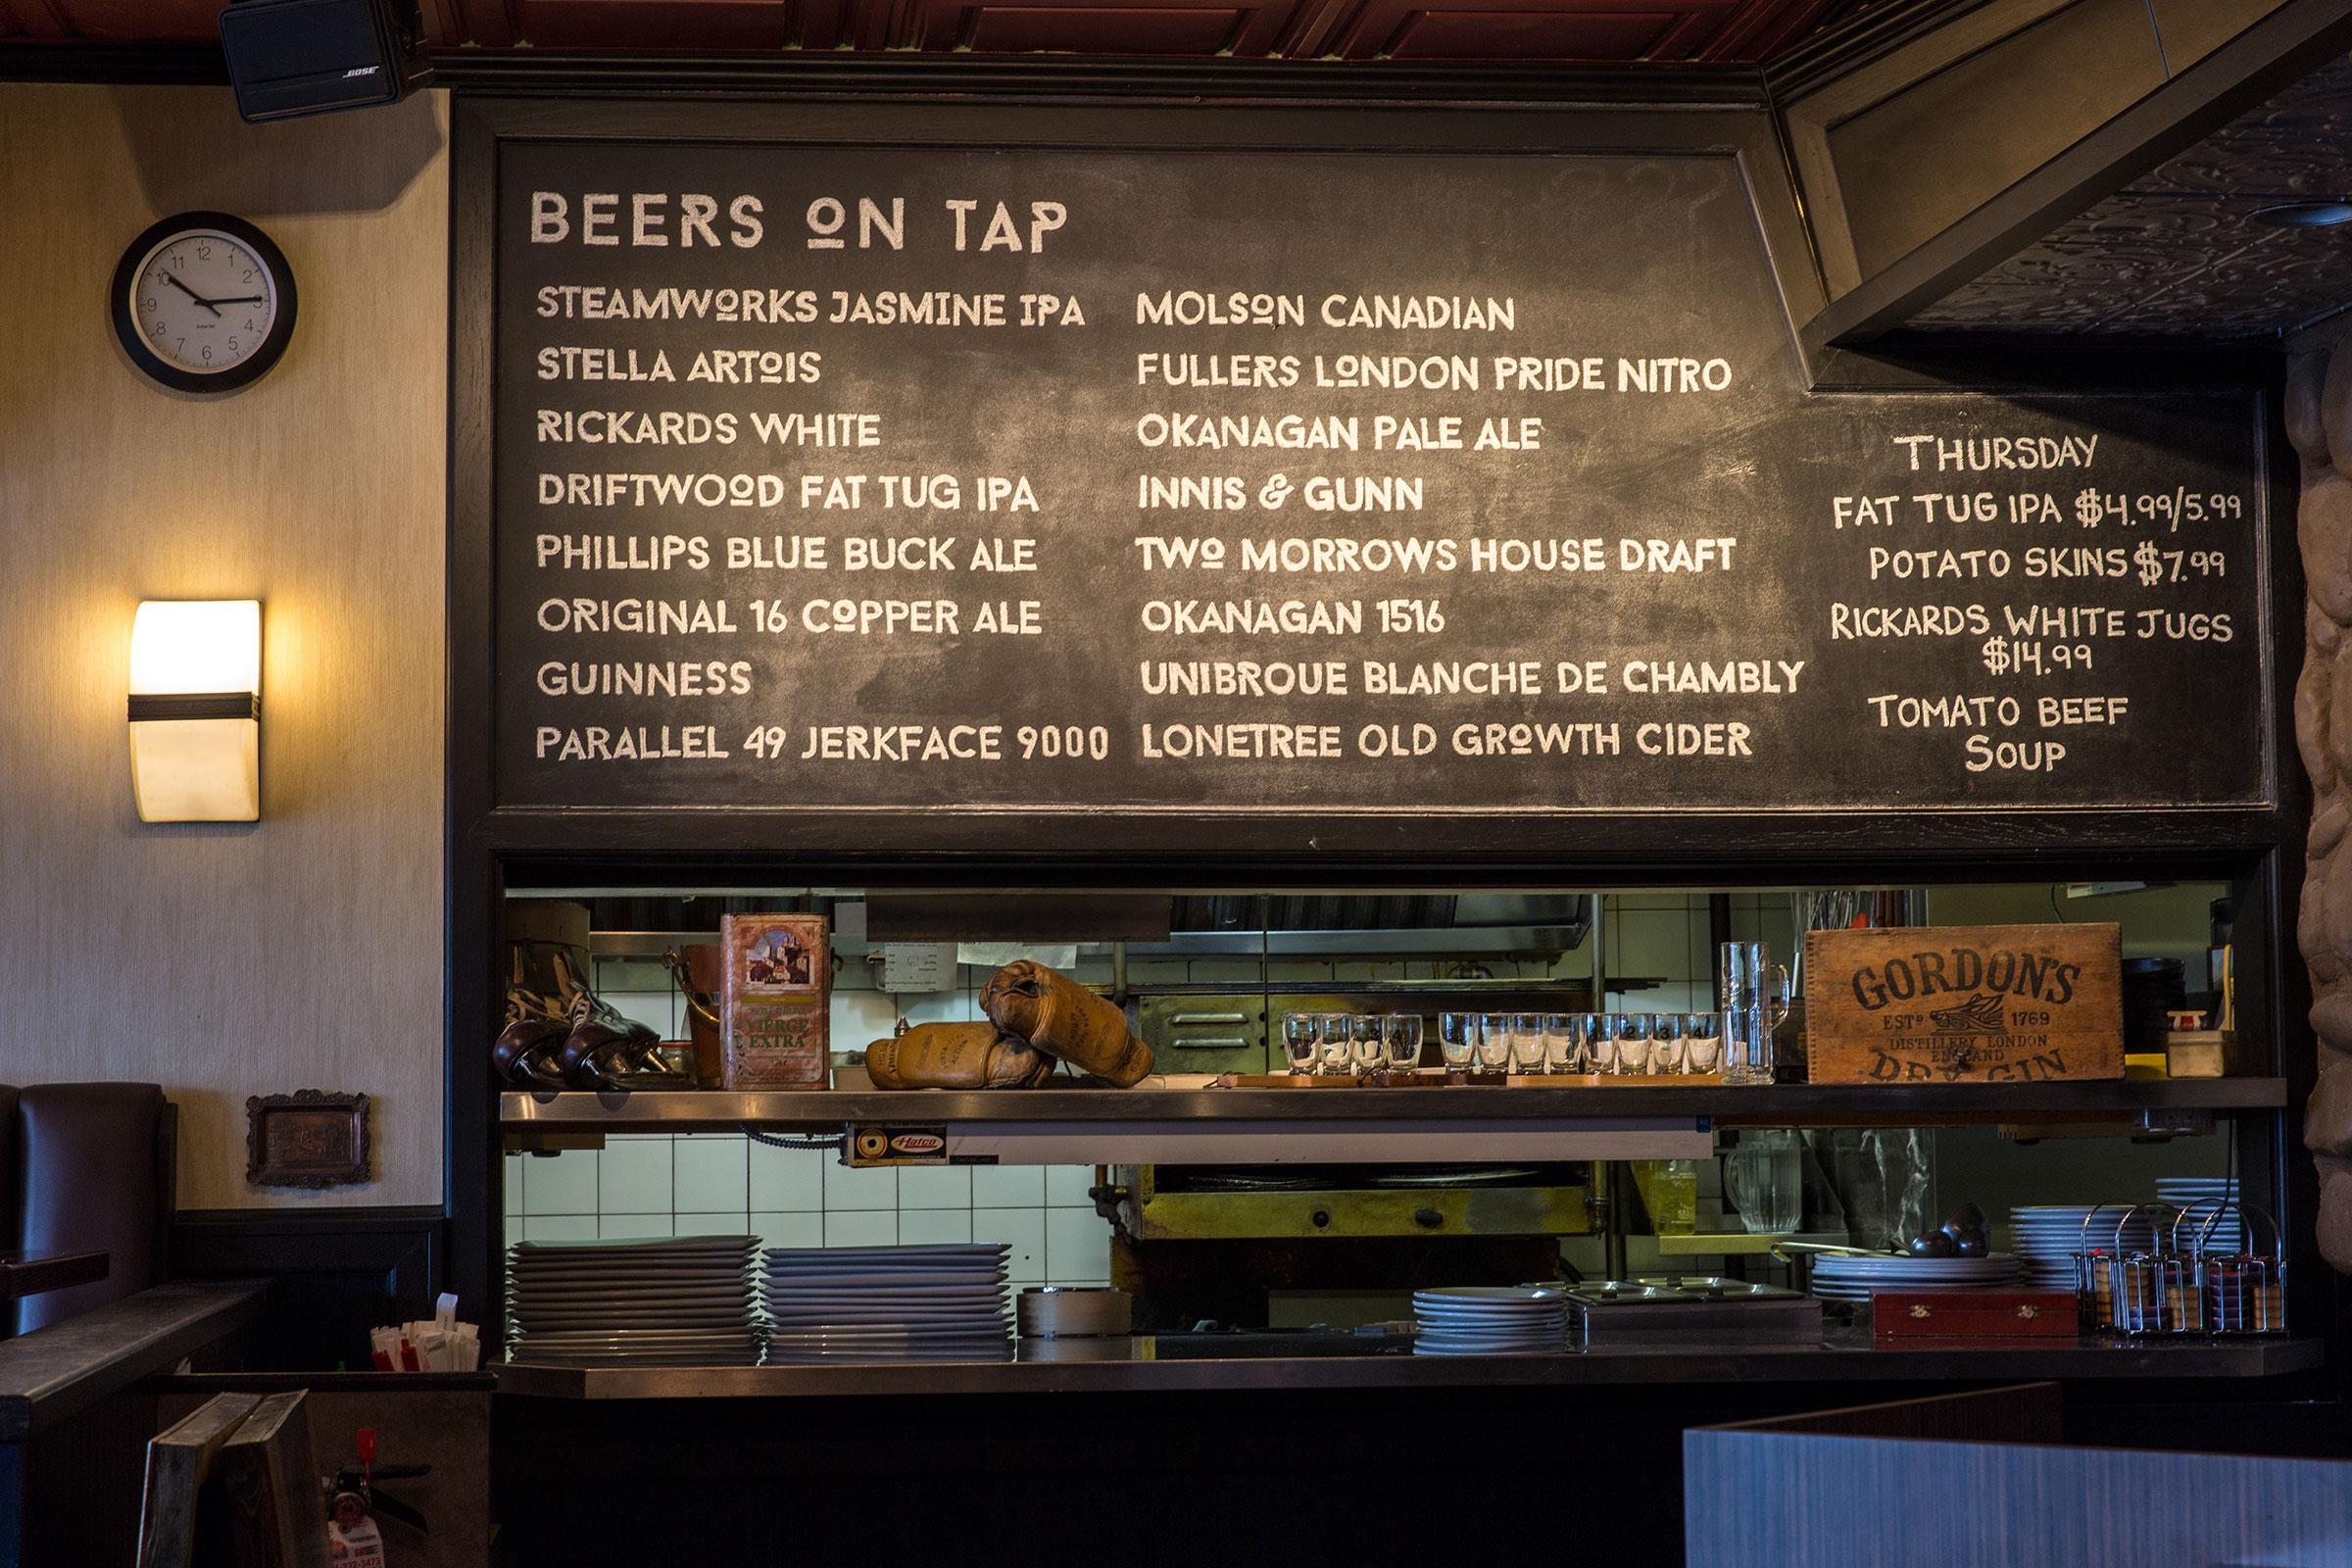 BOSE
12
11
1
10
2
9
3
8
4
7
5
6
BEERS ON TAP
STEAMWORKS JASMINE IPA
STELLA ARTOIS
RICKARDS WHITE
DRIFTWOOD FAT TUG IPA
PHILLIPS BLUE BUCK ALE
ORIGINAL 16 COPPER ALE
GUINNESS
PARALLEL 49 JERKFACE 9000
MOLSON CANADIAN
FULLERS LONDON PRIDE NITRO
OKANAGAN PALE ALE
INNIS & GUNN
TWO MORROWS HOUSE DRAFT
OKANAGAN 1516
UNIBROUE BLANCHE DE CHAMBLY
LONETREE OLD GROWTH CIDER
THURSDAY
FAT TUG IPA $4.99/5.99
POTATO SKINS $7.99
RICKARDS WHITE JUGS
$14.99
TOMATO BEEF
SOUP
VIERGE
EXTRA
2 3 4
GORDON'S
ESTD 1769
DISTILLERY LONDON
ENGLAND
DRY GIN
Hatco